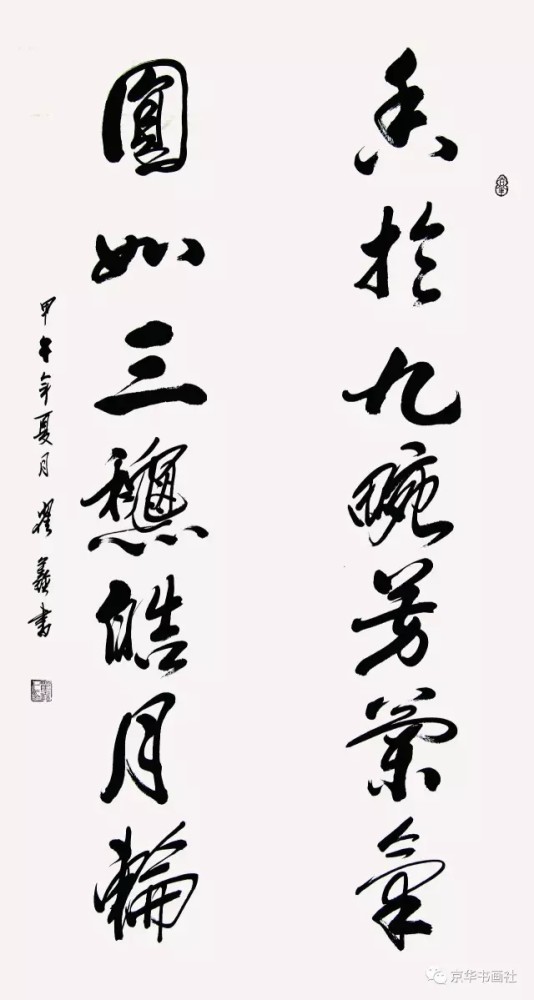 香於九畹芳蘭氣
圓如三龝皓月輪
甲午年夏月 書
京华书画社